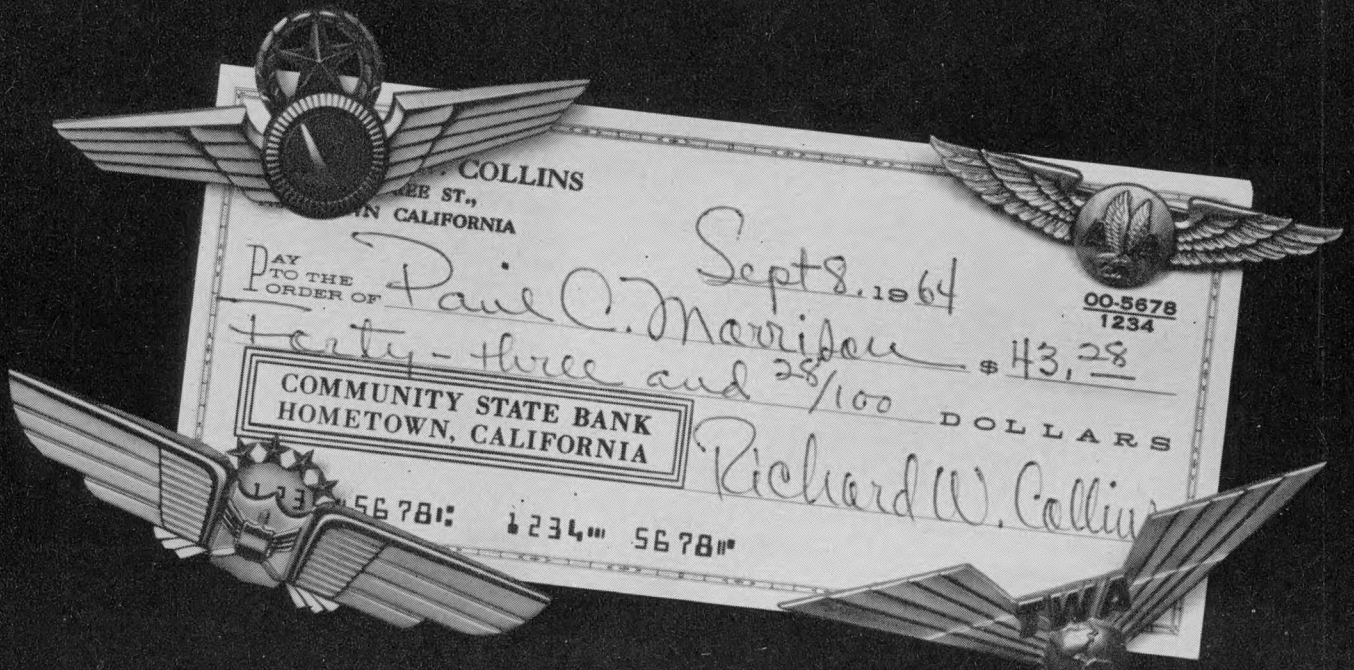 COLLINS
ST.,
CALIFORNIA
Sept 8, 1964
00-5678
1234
PAY
TO THE
ORDER OF Paul C. Morrison $ 43.28
Forty-three and 28/100 DOLLARS
COMMUNITY STATE BANK
HOMETOWN, CALIFORNIA
Richard W. Collins
5678 1234 5678
TWA